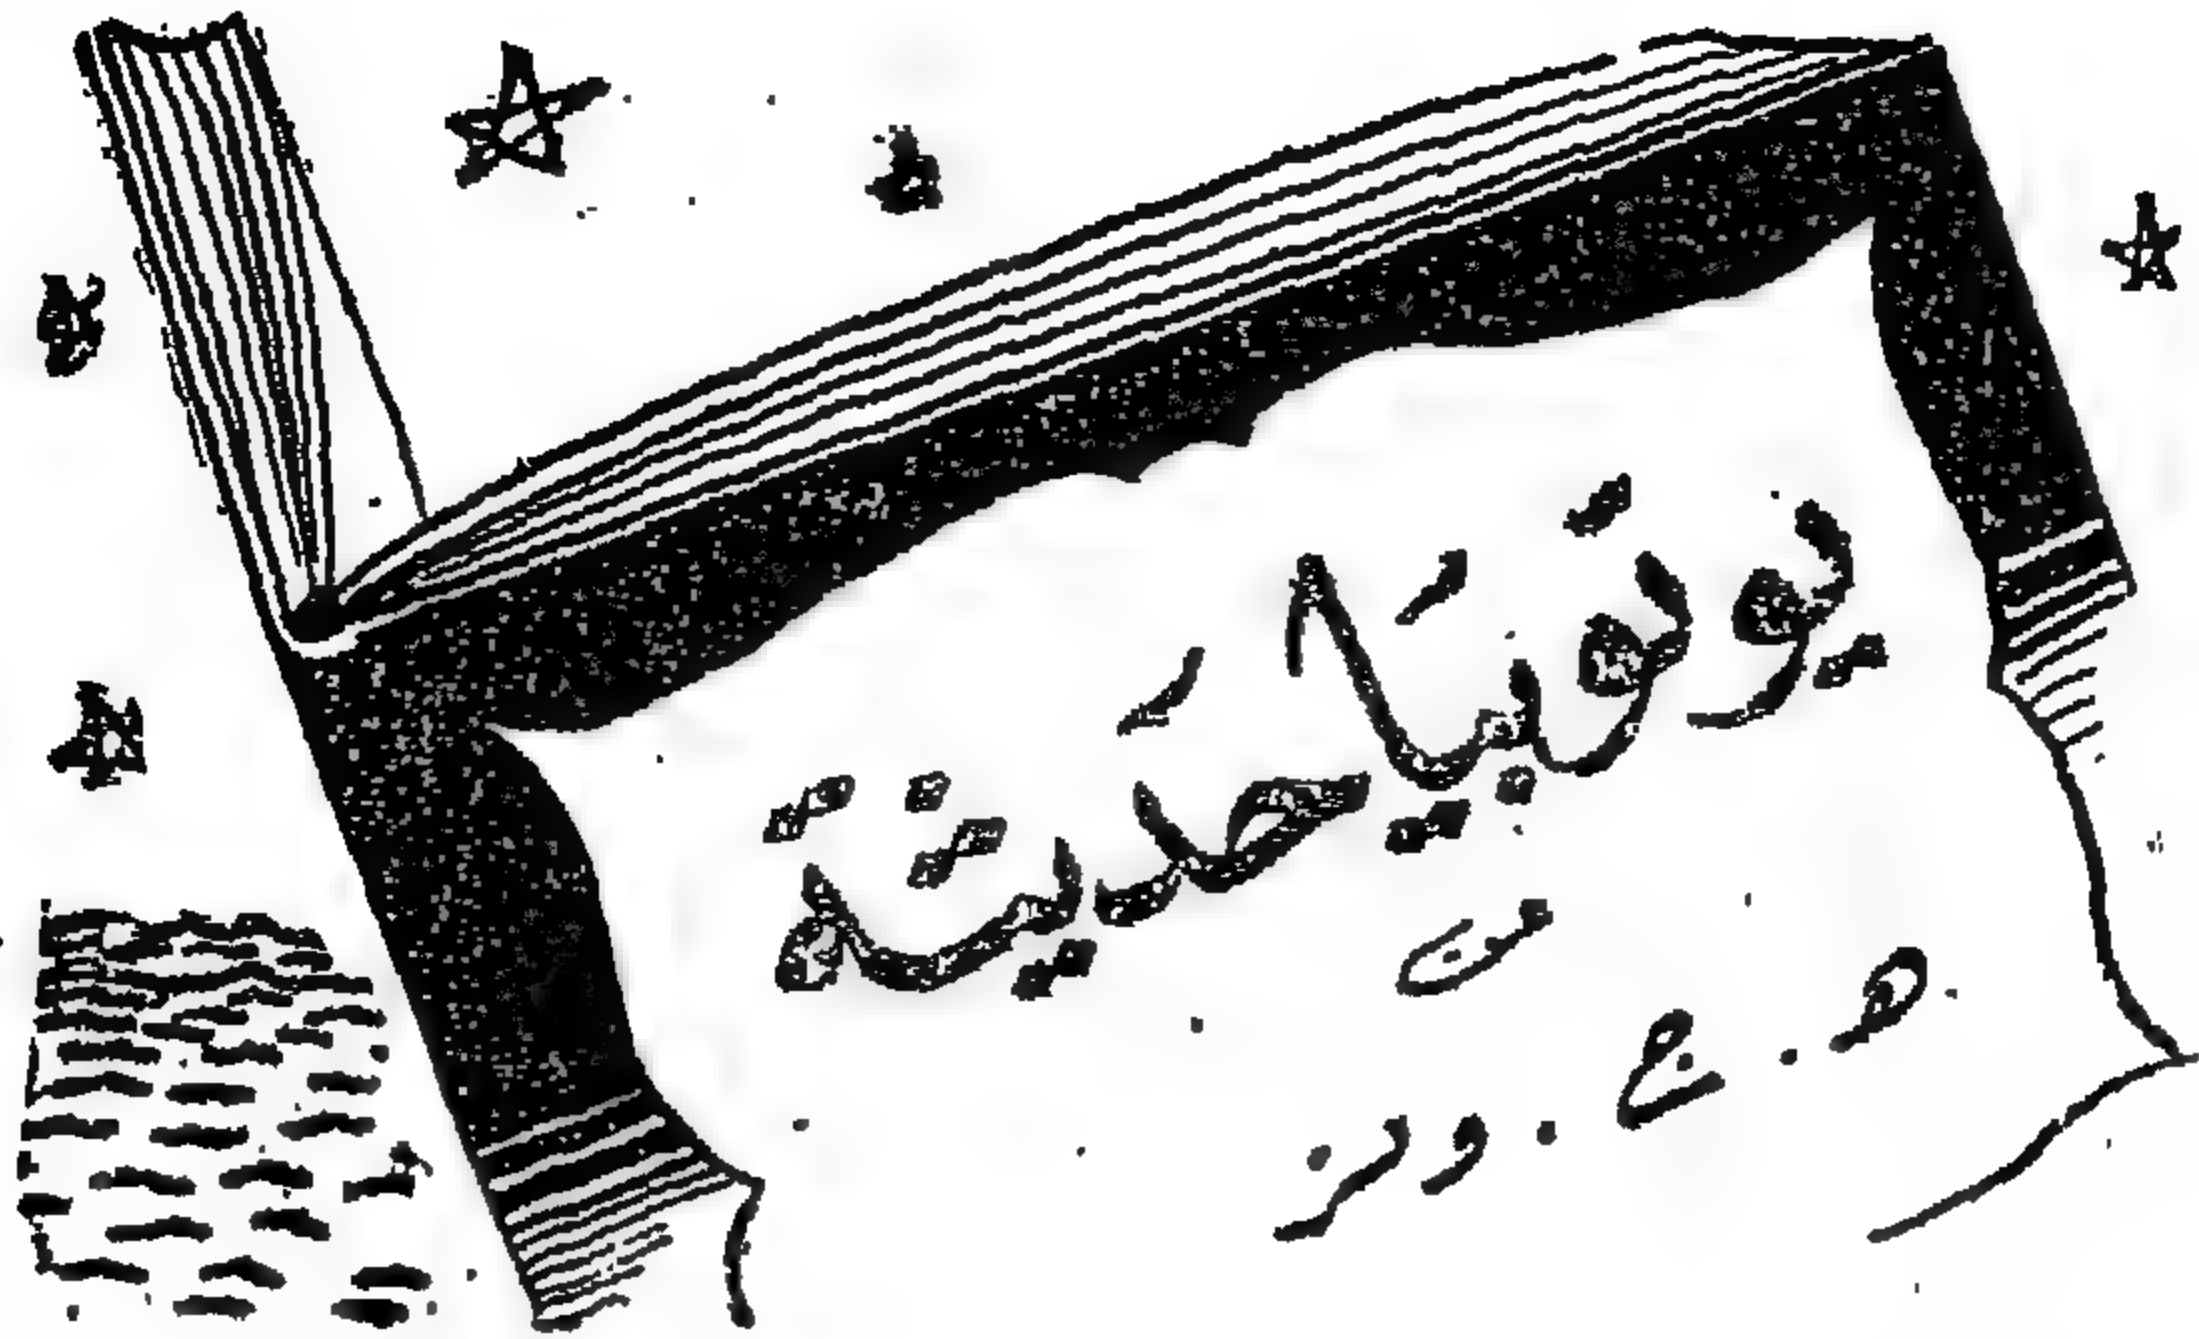 يوتوبيَا حَديثة
ه . ج . ولز